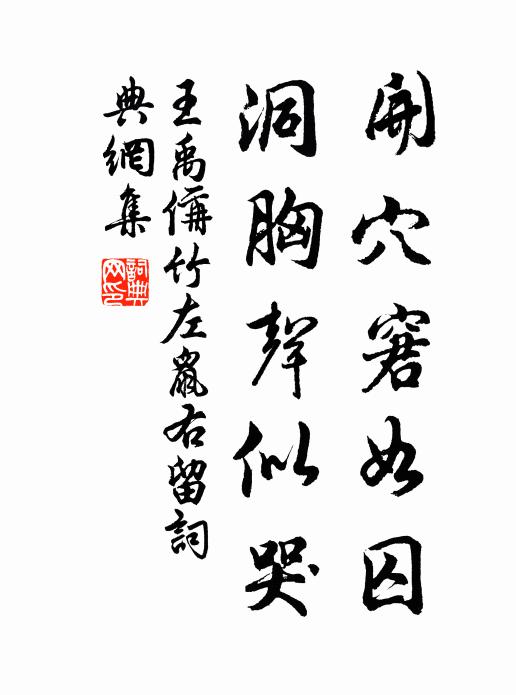 開穴窘如囚
洞胸聲似哭
王禹偁竹左鼠右留詞
典網集
詞典
网印